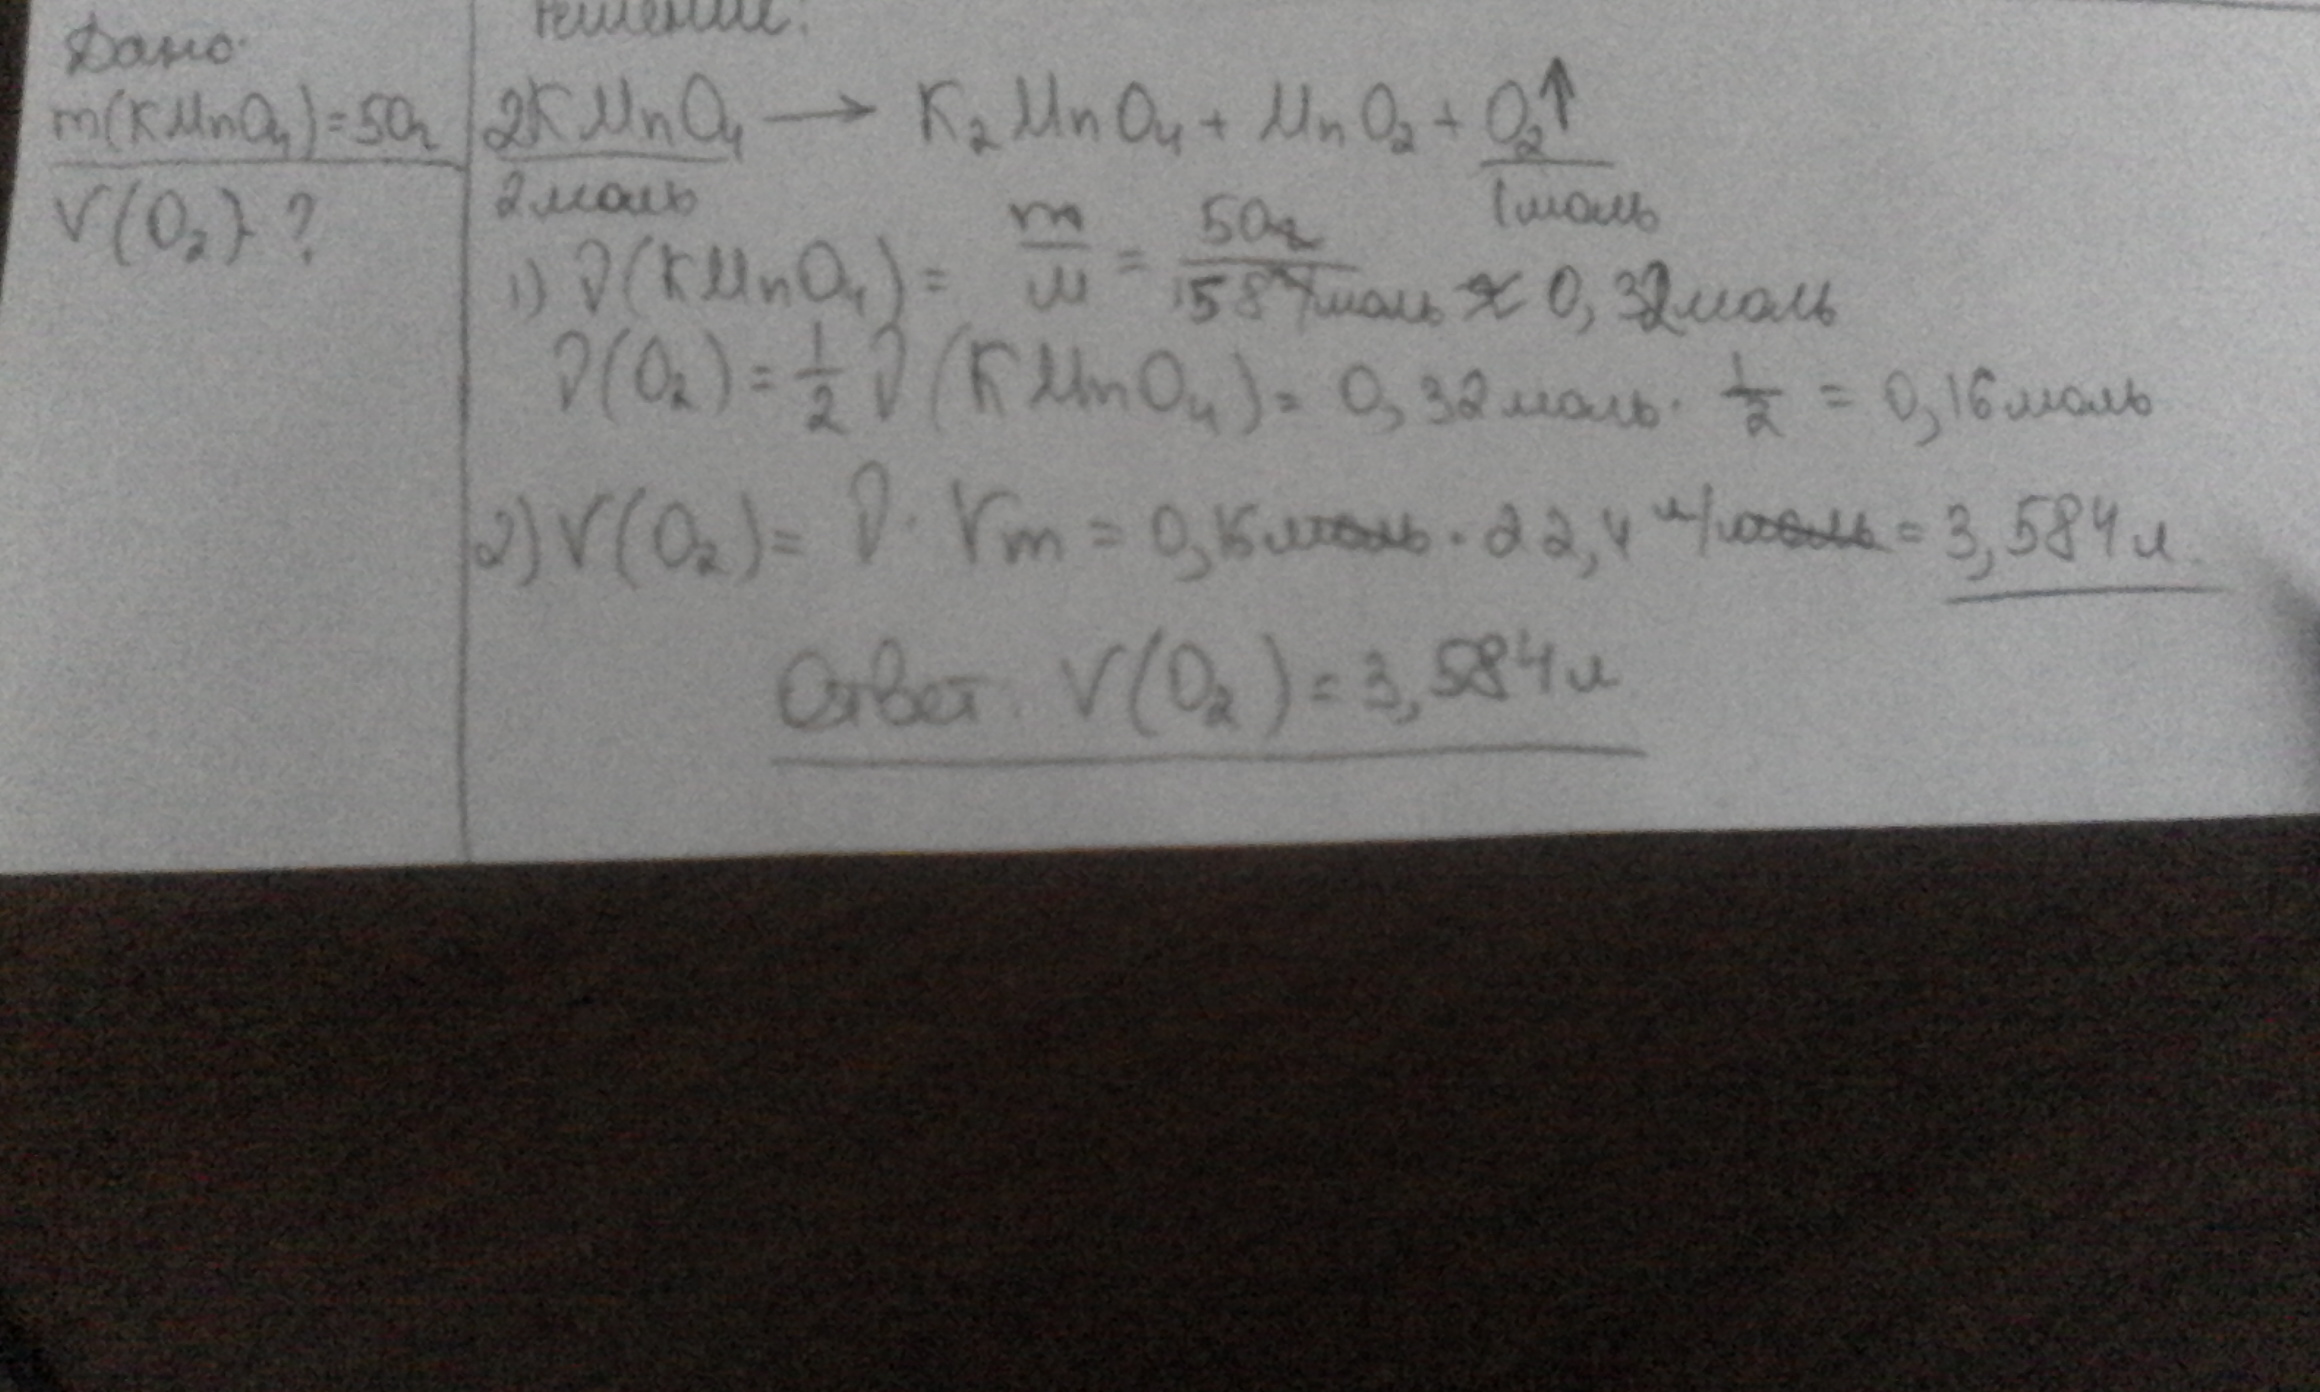 Дано:
m(KMnO₄)=50г
V(O₂)-?
Решение:
2KMnO₄ → K₂MnO₄ + MnO₂ + O₂↑
2моль 1моль
1) ν(KMnO₄) = m/M = 50г/158г/моль ≈ 0,32моль
ν(O₂) = 1/2 ν(KMnO₄) = 0,32моль · 1/2 = 0,16моль
2) V(O₂) = ν · Vm = 0,16моль · 22,4 л/моль = 3,584л.
Ответ: V(O₂) = 3,584л